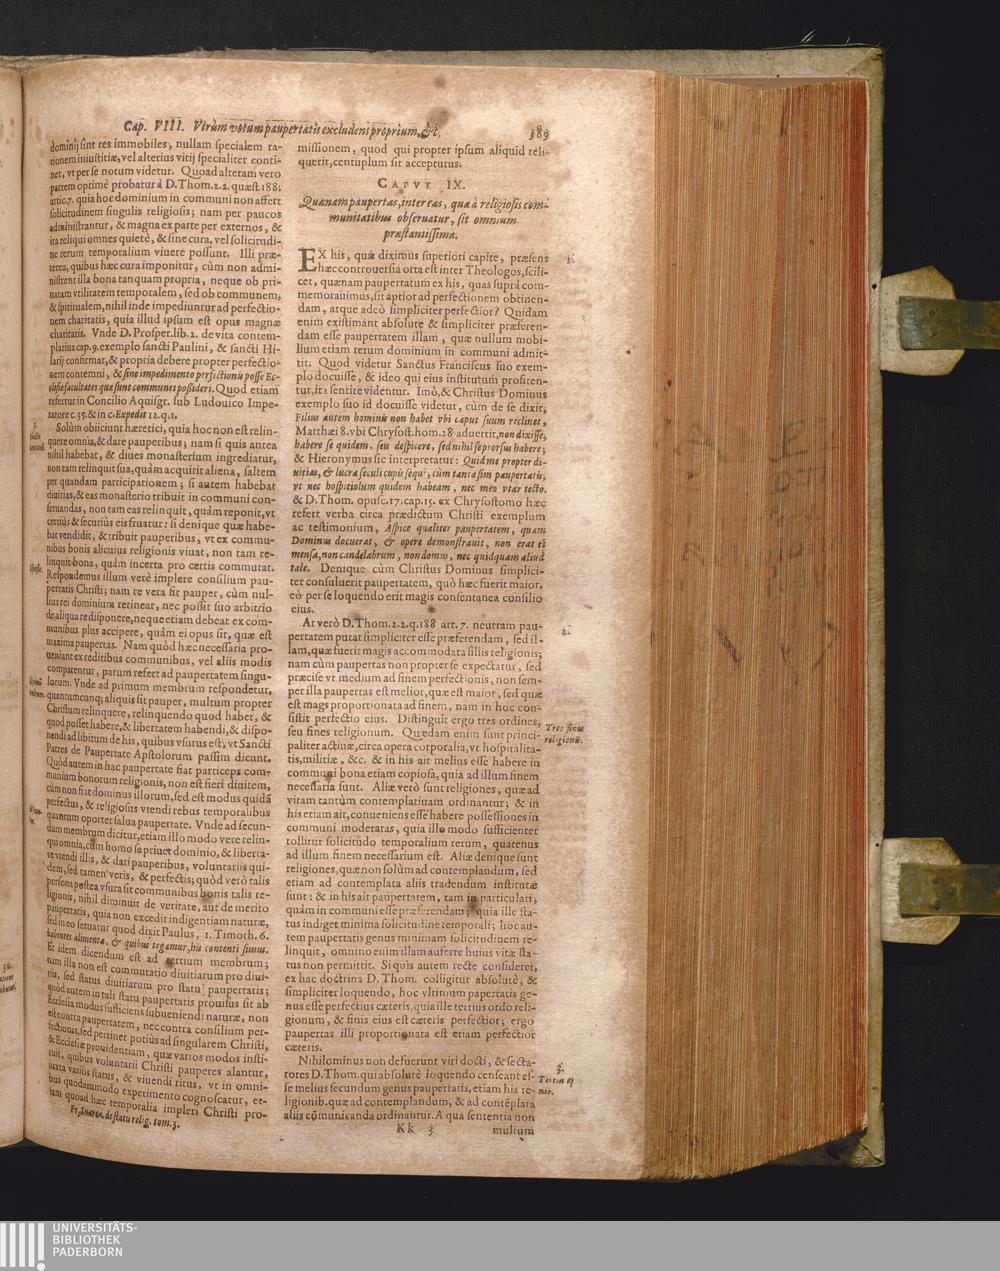 Cap. VIII. Vtrùm votum paupertatis excludens proprium, &c. 389
dominij sint res immobiles, nullam specialem ra-
tionem iniustitiæ, vel alterius vitij specialiter conti-
net, vt per se notum videtur. Quoad alteram verò
partem optimè probatur à D. Thom. 2. 2. quæst. 188.
artic. 7. quia hoc dominium in communi non affert
solicitudinem singulis religiosis; nam per paucos
administrantur, & magna ex parte per externos, &
ita reliqui omnes quietè, & sine cura, vel solicitudi-
ne rerum temporalium viuere possunt. Illi præ-
terea, quibus hæc cura imponitur, cùm non admi-
nistrent illa bona tanquam propria, neque ob pri-
uatam vtilitatem temporalem, sed ob communem,
& spiritualem, nihil inde impediuntur ad perfectio-
nem charitatis, quia illud ipsum est opus magnæ
charitatis. Vnde D. Prosper. lib. 2. de vita contem-
platiua cap. 9. exemplo sancti Paulini, & sancti Hi-
larij confirmat, & propria debere propter perfectio-
nem contemni, & sine impedimento perfectionis posse Ec-
clesiæ facultates quæ sunt communes possideri. Quod etiam
refertur in Concilio Aquisgr. sub Ludouico Impe-
ratore c. 35. & in c. Expedit 12. q. 1.
Solùm obiiciunt hæretici, quia hoc non est relin-
quere omnia, & dare pauperibus; nam si quis antea
nihil habebat, & diues monasterium ingrediatur,
non tam relinquit sua, quàm acquirit aliena, saltem
per quandam participationem; si autem habebat
diuitias, & eas monasterio tribuit in communi con-
seruandas, non tam eas relinquit, quàm reponit, vt
certiùs & securiùs eis fruatur: si denique quæ habe-
bat vendidit, & tribuit pauperibus, vt ex commu-
nibus bonis alicuius religionis viuat, non tam re-
linquit bona, quàm incerta pro certis commutat.
Respondemus illum verè implere consilium pau-
pertatis Christi; nam re vera fit pauper, cùm nul-
lius rei dominium retinear, nec possit suo arbitrio
de aliqua re disponere, neque etiam debeat ex com-
munibus plus accipere, quàm ei opus sit, quæ est
maxima paupertas. Nam quòd hæc necessaria pro-
ueniant ex reditibus communibus, vel aliis modis
comparentur, parum refert ad paupertatem singu-
lorum. Vnde ad primum membrum respondetur,
quantumcunque aliquis sit pauper, multum propter
Christum relinquere, relinquendo quod habet, &
quod posset habere, & libertatem habendi, & dispo-
nendi ad libitum de his, quibus vsurus est, vt Sancti
Patres de Paupertate Apstolorum passim dicunt.
Quòd autem in hac paupertate fiat particeps com-
munium bonorum religionis, non est fieri diuitem,
cùm non fiat dominus illorum, sed est modus quidã
perfectus, & religiosus vtendi rebus temporalibus
quantum oportet salua paupertate. Vnde ad secun-
dum membrum dicitur, etiam illo modo vere relin-
qui omnia, cùm homo se priuet dominio, & liberta-
te vtendi illis, & dari pauperibus, voluntariis qui-
dem, sed tamen veris, & perfectis; quòd verò talis
persona postea vsura sit communibus bonis talis re-
ligionis, nihil diminuit de veritate, aut de merito
paupertatis, quia non excedit indigentiam naturæ,
sed in eo seruatur quod dixit Paulus, 1. Timoth. 6.
habentes alimenta, & quibus tegamur, his contenti simus.
Et idem dicendum est ad tertium membrum;
nam illa non est commutatio diuitiarum pro diui-
tiis, sed status diuitiarum pro statu paupertatis;
quòd autem in tali statu paupertatis prouisus sit ab
Ecclesia modus sufficiens subueniendi naturæ, non
est contra paupertatem, nec contra consilium per-
fectionis, sed pertinet potiùs ad singularem Christi,
& Ecclesiæ prouidentiam, quæ varios modos insti-
tuit, quibus voluntarii Christi pauperes alantur,
iuxta varios status, & viuendi ritus, vt in omni-
bus quodammodo experimento cognoscatur, et-
iam quoad hæc temporalia impleri Christi pro-
Fr. Suarez. de statu relig. tom. 3.
missionem, quod qui propter ipsum aliquid reli-
querit, centuplum sit accepturus.
CAPVT IX.
Quænam paupertas, inter eas, quæ à religiosis com-
munitatibus obseruatur, sit omnium
præstantissima.
EX his, quæ diximus superiori capite, præsens
hæc controuersia orta est inter Theologos, scili-
cet, quænam paupertatum ex his, quas suprà com-
memorauimus, sit aptior ad perfectionem obtinen-
dam, atque adeò simpliciter perfectior? Quidam
enim existimant absolute & simpliciter præferen-
dam esse paupertatem illam, quæ nullum mobi-
lium etiam rerum dominium in communi admit-
tit. Quod videtur Sanctus Franciscus suo exem-
plo docuisse, & ideo qui eius institutum profiten-
tur, ita sentire videntur. Imò, & Christus Dominus
exemplo suo id docuisse videtur, cùm de se dixit,
Filius autem hominis non habet vbi caput suum reclinet,
Matthæi 8. vbi Chrysost. hom. 28 aduertit, non dixisse,
habere se quidem, seu despicere, sed nihil se prorsus habere;
& Hieronymus sic interpretatur: Quid me propter di-
uitias, & lucra seculi cupis sequi, cùm tanta sim paupertatis,
vt nec hospitiolum quidem habeam, nec meo vtar tecto.
& D. Thom. opusc. 17. cap. 15. ex Chrysostomo hæc
refert verba circa prædictum Christi exemplum
ac testimonium, Aspice qualiter paupertatem, quam
Dominus docuerat, & opere demonstrauit, non erat ei
mensa, non candelabrum, non domus, nec quidquam aliud
tale. Denique cùm Christus Dominus simplici-
ter consuluerit paupertatem, quò hæc fuerit maior,
eò per se loquendo erit magis consentanea consilio
eius.
At verò D. Thom. 2. 2. q. 188 art. 7. neutram pau-
pertatem putat simpliciter esse præferendam, sed il-
lam, quæ fuerit magis accommodata siliis religionis;
nam cùm paupertas non propter se expectatur, sed
præcise vt medium ad finem perfectionis, non sem-
per illa paupertas est melior, quæ est maior, sed quæ
est mags proportionata ad finem, nam in hoc con-
sistit perfectio eius. Distinguit ergo tres ordines,
seu fines religionum. Quædam enim sunt princi-
paliter actiuæ, circa opera corporalia, vt hospitalita-
tis, militiæ, &c. & in his ait melius esse habere in
communi bona etiam copiosa, quia ad illum finem
necessaria sunt. Aliæ verò sunt religiones, quæ ad
vitam tantùm contemplatiuam ordinantur; & in
his etiam ait, conueniens esse habere possessiones in
communi moderatas, quia illo modo sufficienter
tollitur solicitudo temporalium rerum, quatenus
ad illum finem necessarium est. Aliæ denique sunt
religiones, quæ non solùm ad contemplandum, sed
etiam ad contemplata aliis tradendum institutæ
sunt: & in his ait paupertatem, tam in particulari,
quàm in communi esse præferendam; quia ille sta-
tus indiget minima solicitudine temporali; hoc au-
tem paupertatis genus minimam solicitudinem re-
linquit, omnino enim illam auferre huius vitæ sta-
tus non permittit. Si quis autem recte consideret,
ex hac doctrina D. Thom. colligitur absolutè, &
simpliciter loquendo, hoc vltimum papertatis ge-
nus esse perfectius cæteris, quia ille tertius ordo reli-
gionum, & finis eius est cæteris perfectior; ergo
paupertas illi proportionata est etiam perfectior
cæteris.
Nihilominus non defuerunt viri docti, & secta-
tores D. Thom. qui absolutè loquendo censeant es-
se melius secundum genus paupertatis, etiam his re-
ligionib. quæ ad contemplandum, & ad contẽplata
aliis cõmunicanda ordinantur. A qua sententia non
Kk 3 multum
2.
Tres fines
religionis.
3.
UNIVERSITÄTS-
BIBLIOTHEK
PADERBORN